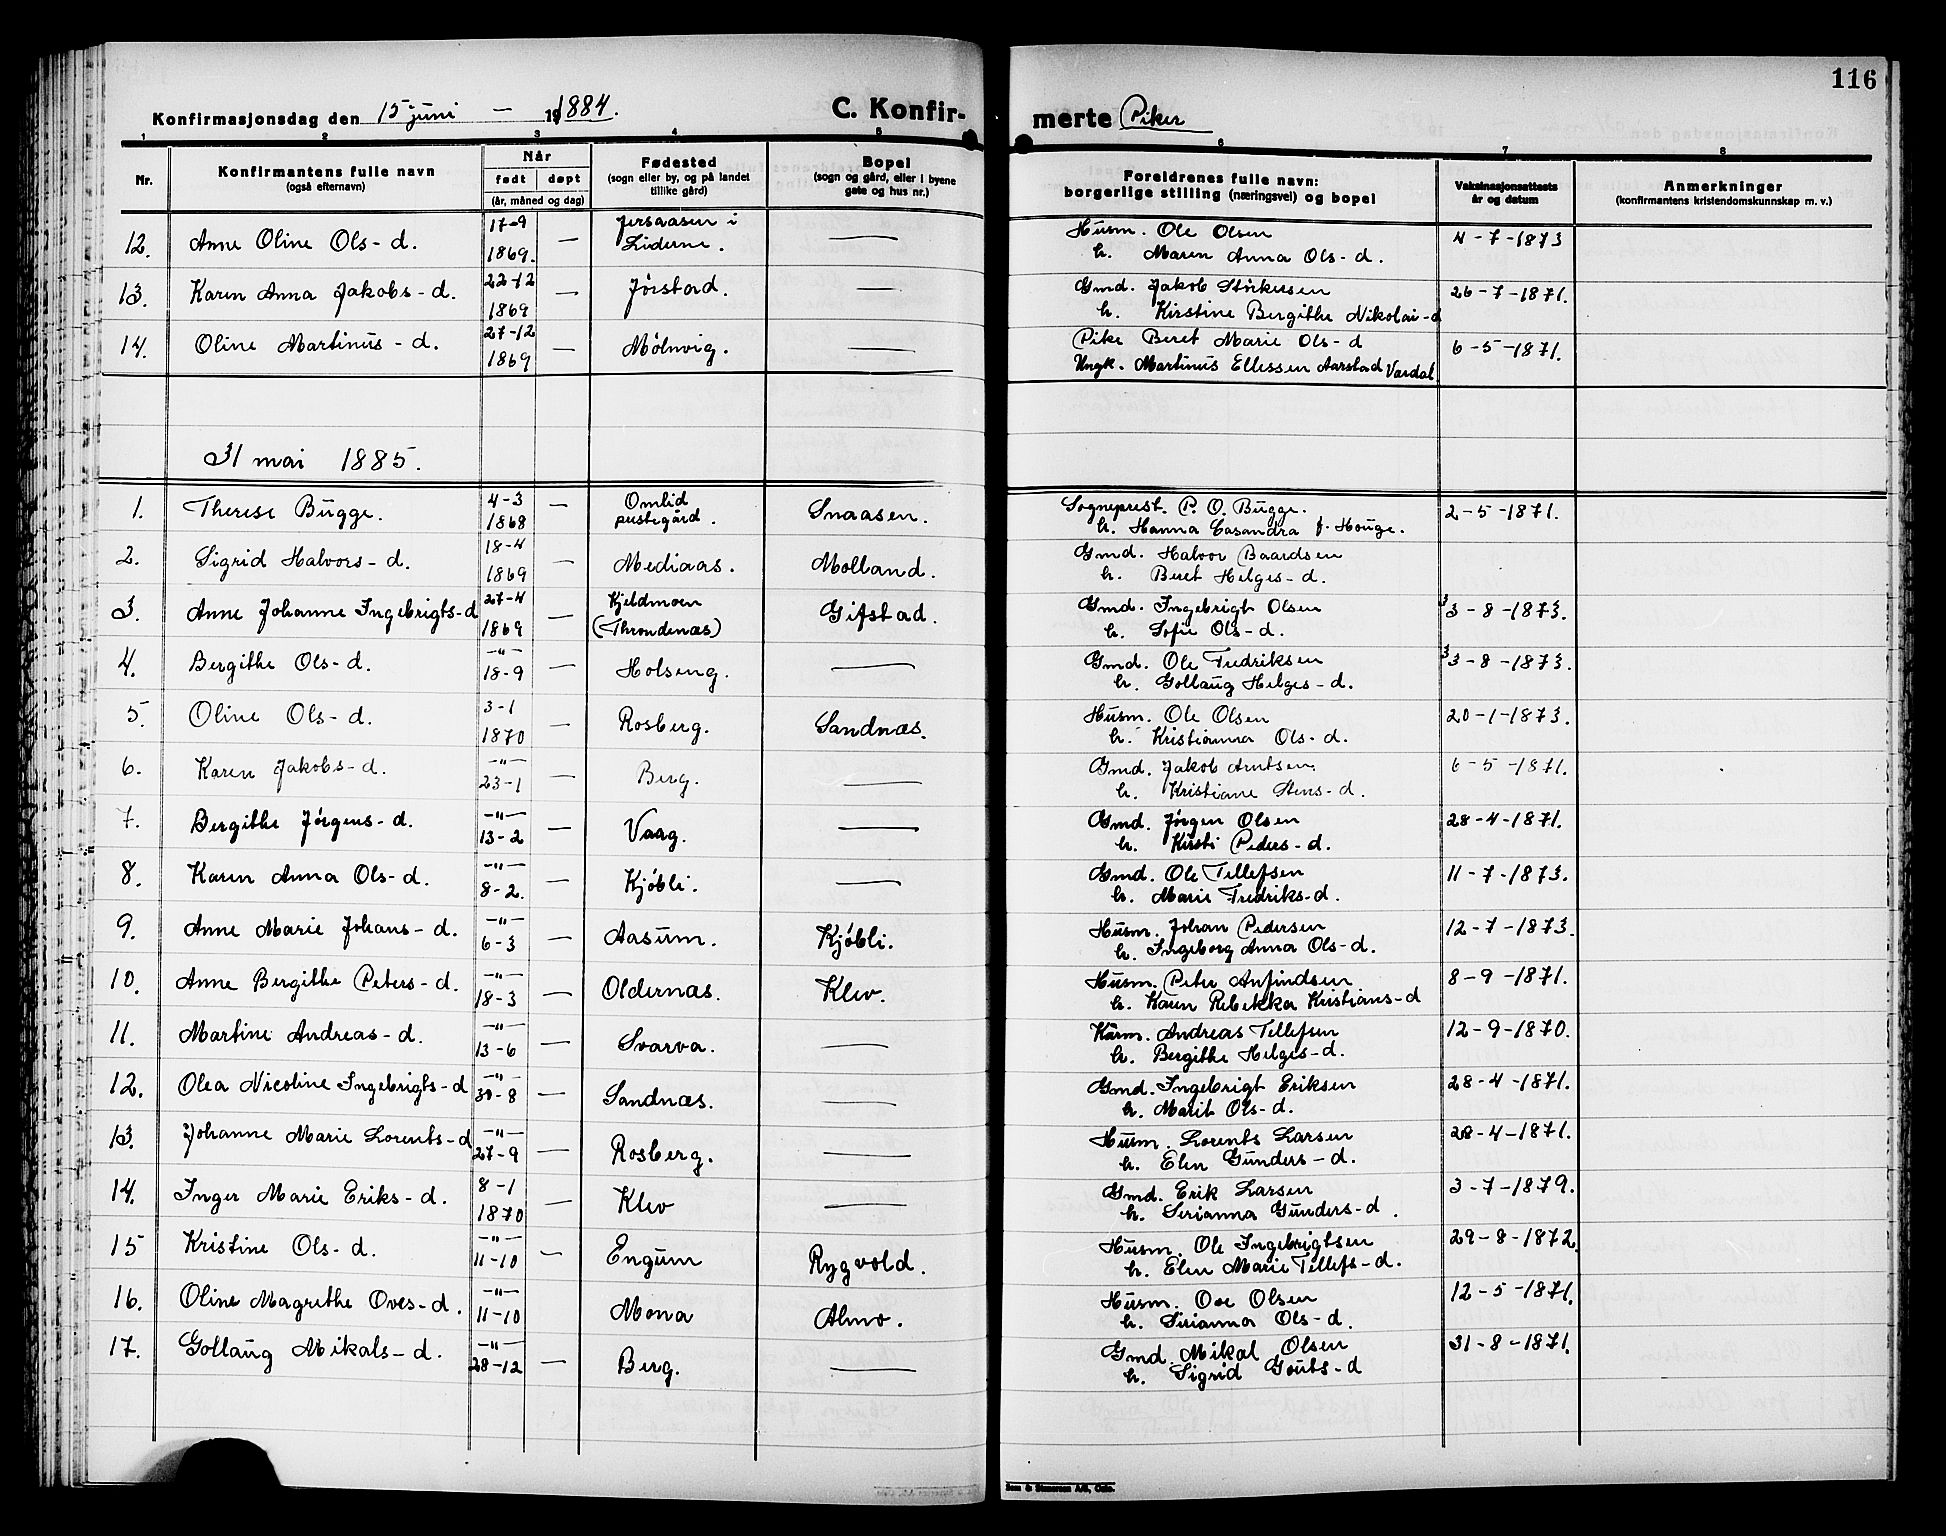 116
Konfirmasjonsdag den 15 juni — 1884. C. Konfirmerte Piker
1 2 3 4 5 6 7 8
Nr. Konfirmantens fulle navn (også efternavn) Når født døpt (år, måned og dag) Fødested (sogn eller by, og på landet tillike gård) Bopel (sogn og gård, eller i byene gate og hus nr.) Foreldrenes fulle navn: borgerlige stilling (næringsvei) og bopel Vaksinasjonsattests år og datum Anmerkninger (konfirmantens kristendomskunnskap m. v.)
12. Anne Oline Ols-d. 17-9 1869. — Jersaasen i Lierne. — Husm. Ole Olsen h. Maren Anna Ols-d. 4-7-1873
13. Karen Anna Jakobs-d. 22-12 1869 — Jørstad. — Gmd. Jakob Störkersen h. Kirstine Bergithe Nikolai-d 26-7-1871.
14. Oline Martinus-d. 27-12 1869 — Mølnvig. — Pike Beret Marie Ols-d Ungk. Martinus Ellessen Aarstad Værdal 6-5-1871.
31 mai 1885.
1. Therese Bugge. 4-3 1868 — Omlid prestegård. Snaasen. Sogneprest. P. O. Bugge. h. Hanna Casandra f. Houge. 2-5-1871.
2. Sigrid Halvors-d. 18-4 1869 — Mediaas. Molland. Gmd. Halvor Baardsen h. Beret Helges-d.
3. Anne Johanne Ingebrigts-d 27-4 1869 — Kjeldmoen (Throndenæs) Gifstad. Gmd. Ingebrigt Olsen h. Sofie Ols-d. 3-8-1873.
4. Bergithe Ols-d. —"— 18-9 — Holseng. — Gmd. Ole Fredriksen h. Gollaug Helges-d. 3-8-1873.
5. Oline Ols-d. 3-1 1870 — Rosberg. Sandnæs. Husm. Ole Olsen h. Kristianna Ols-d. 20-1-1873.
6. Karen Jakobs-d. —"— 23-1 — Berg. — Gmd. Jakob Arntsen. h. Kristiane Stens-d. 6-5-1871.
7. Bergithe Jørgens-d. —"— 13-2 — Vaag. — Gmd. Jørgen Olsen h. Kirsti Peders-d. 28-4-1871.
8. Karen Anna Ols-d. —"— 8-2. — Kjøbli. — Gmd. Ole Tillefsen h. Marie Fredriks-d. 11-7-1873.
9. Anne Marie Johans-d. —"— 6-3 — Aasum. Kjøbli. Husm. Johan Pedersen h. Ingeborg Anna Ols-d. 12-7-1873.
10. Anne Bergithe Peters-d. —"— 18-3 — Oldernæs. Klev. Husm. Peter Anfindsen h. Karen Rebekka Kristians-d 8-9-1871.
11. Martine Andreas-d. —"— 13-6 — Svarva. — Kårm. Andreas Tellefsen h. Bergithe Helges-d. 12-9-1870.
12. Olea Nicoline Ingebrigts-d —"— 30-8 — Sandnæs. — Gmd. Ingebrigt Eriksen h. Marit Ols-d. 28-4-1871.
13. Johanne Marie Lorents-d —"— 27-9 — Rosberg. — Husm. Lorents Larsen h. Elen Gunders-d. 28-4-1871.
14. Inger Marie Eriks-d. 8-1 1870 — Klev — Gmd. Erik Larsen h. Serianna Gunders-d. 3-7-1879.
15 Kristine Ols-d. —"— 11-10 — Engum Rygvold. Husm. Ole Ingebrigtsen h. Elen Marie Tillefs-d. 29-8-1872.
16. Oline Magrethe Oves-d. —"— 11-10 Mona Almo. Husm. Ove Olsen h. Sirianna Ols-d. 12-5-1871.
17. Gollaug Mikals-d. —"— 28-12 — Berg. — Gmd. Mikal Olsen h. Sigrid Gouts-d 31-8-1871.